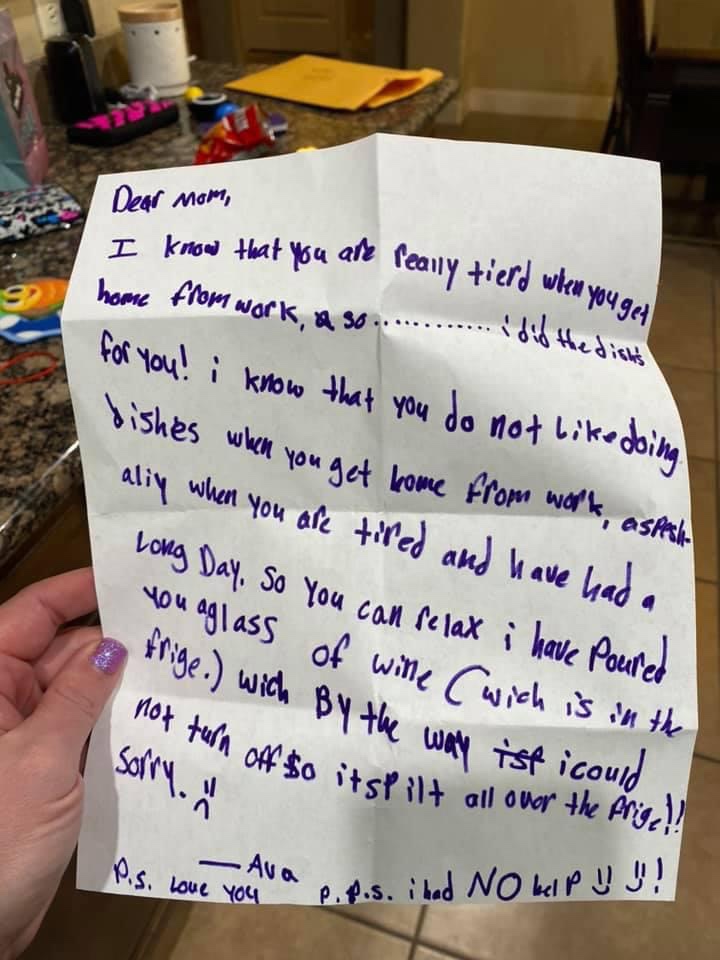 Dear mom,
I know that you are really tierd when you get
home from work, so ............ i did the dishs
for you! i know that you do not like doing
dishes when you get home from work, aspesh-
aliy when you are tired and have had a
Long Day. So you can relax i have Poured
you a glass of wine (wich is in the
frige.) wich BY the way ist i could
not turn off so it spilt all over the frige!!
sorry. :(
— Ava
P.s. Love you P.P.s. i had NO help :) :)!